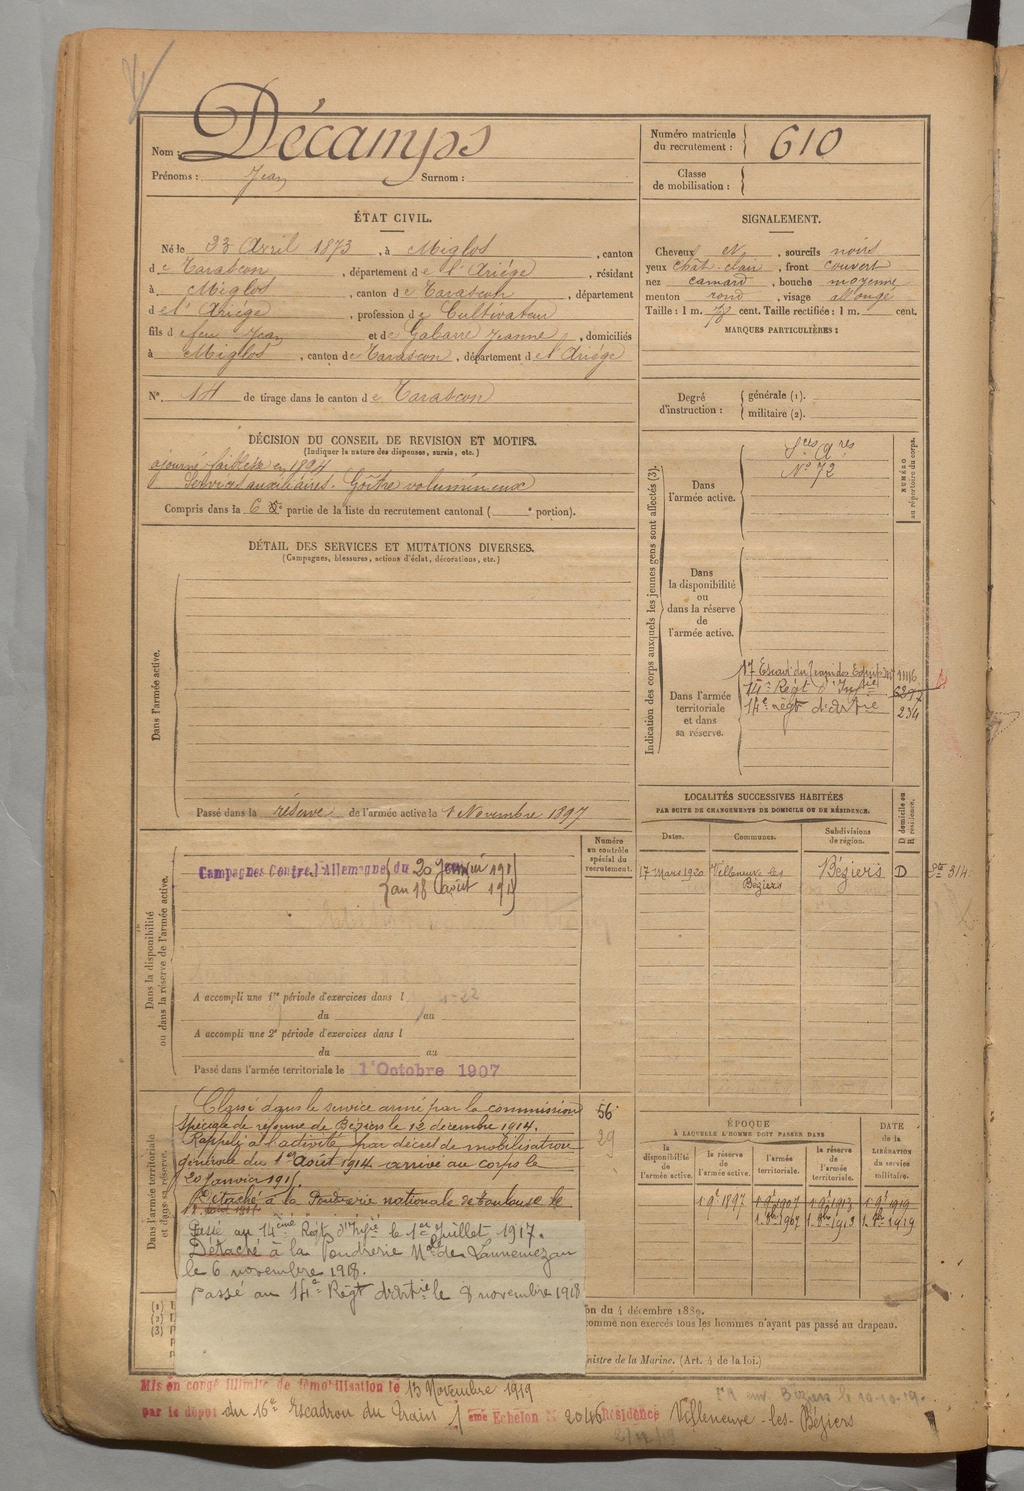 Nom : Décamps
Prénoms : Jean Surnom :
Numéro matricule du recrutement : 610
Classe de mobilisation :
ÉTAT CIVIL.
Né le 23 Avril 1873, à Miglos, canton
de Tarascon, département de l'Ariége, résidant
à Miglos, canton de Tarascon, département
d e l'Ariége, profession de Cultivateur
fils de feu Jean et de Gabarre Jeanne, domiciliés
à Miglos, canton de Tarascon, département de l'Ariége
N° 14 de tirage dans le canton de Tarascon
SIGNALEMENT.
Cheveux N, sourcils noirs
yeux Chât. clair, front couvert
nez camard, bouche moyenne
menton rond, visage allongé
Taille : 1 m. 78 cent. Taille rectifiée : 1 m. cent.
MARQUES PARTICULIÈRES :
Degré d'instruction : générale (1).
militaire (2).
DÉCISION DU CONSEIL DE REVISION ET MOTIFS.
(Indiquer la nature des dispenses, sursis, etc.)
ajourné faiblesse en 1894
Services auxiliaires. Goître volumineux
Compris dans la 6 e partie de la liste du recrutement cantonal ( e portion).
DÉTAIL DES SERVICES ET MUTATIONS DIVERSES.
(Campagnes, blessures, actions d'éclat, décorations, etc.)
Dans l'armée active.
Passé dans la réserve de l'armée active le 1 Novembre 1897
Indication des corps auxquels les jeunes gens sont affectés (3).
NUMÉRO au répertoire du corps.
Dans l'armée active.
Sces Ares
N° 72
Dans la disponibilité ou dans la réserve de l'armée active.
Dans l'armée territoriale et dans sa réserve.
17 Escad du Train des Equip 1116
14e Régt d'Inftie
14e régt d'artie 234
LOCALITÉS SUCCESSIVES HABITÉES
PAR SUITE DE CHANGEMENTS DE DOMICILE OU DE RÉSIDENCE.
Dates. Communes. Subdivisions de région. D domicile ou R résidence.
17 Mars 1920 Villeneuve les Béziers Béziers D
Numéro au contrôle spécial du recrutement.
Dans la disponibilité ou dans la réserve de l'armée active.
Campagnes Contre l'Allemagne du 20 Janvier 191
au 18 août 191
A accompli une 1re période d'exercices dans l
du au
A accompli une 2e période d'exercices dans l
du au
Passé dans l'armée territoriale le 1 Octobre 1907
Dans l'armée territoriale et dans sa réserve.
Classé dans le service armé par la commission 56
spéciale de réforme de Béziers le 12 décembre 1914. 29
Rappelé à l'activité par décret de mobilisation
générale du 1er Août 1914 arrivé au corps le
20 janvier 191
Détaché à la Poudrerie nationale de Toulouse le
Passé au 14eme Régt d'Infie le 1er Juillet 1917.
Détaché à la Poudrerie Nle de Lannemezan
le 6 novembre 1918.
passé au 14e Régt d'artie le 8 novembre 1918
ÉPOQUE
À LAQUELLE L'HOMME DOIT PASSER DANS
la disponibilité de l'armée active. la réserve de l'armée active. l'armée territoriale. la réserve de l'armée territoriale.
DATE de la LIBÉRATION du service militaire.
1 9e 1897 1 9e 1907 1 9e 1913 1 9e 1919
(1)
(2)
(3)
on du 4 décembre 1889.
comme non exercés tous les hommes n'ayant pas passé au drapeau.
nistre de la Marine. (Art. 4 de la loi.)
Mis en congé illimité de démobilisation le 15 Novembre 1919
par le dépôt du 16e Escadron du Train 1 eme Echelon N° 2046 Résidence Villeneuve-les-Béziers